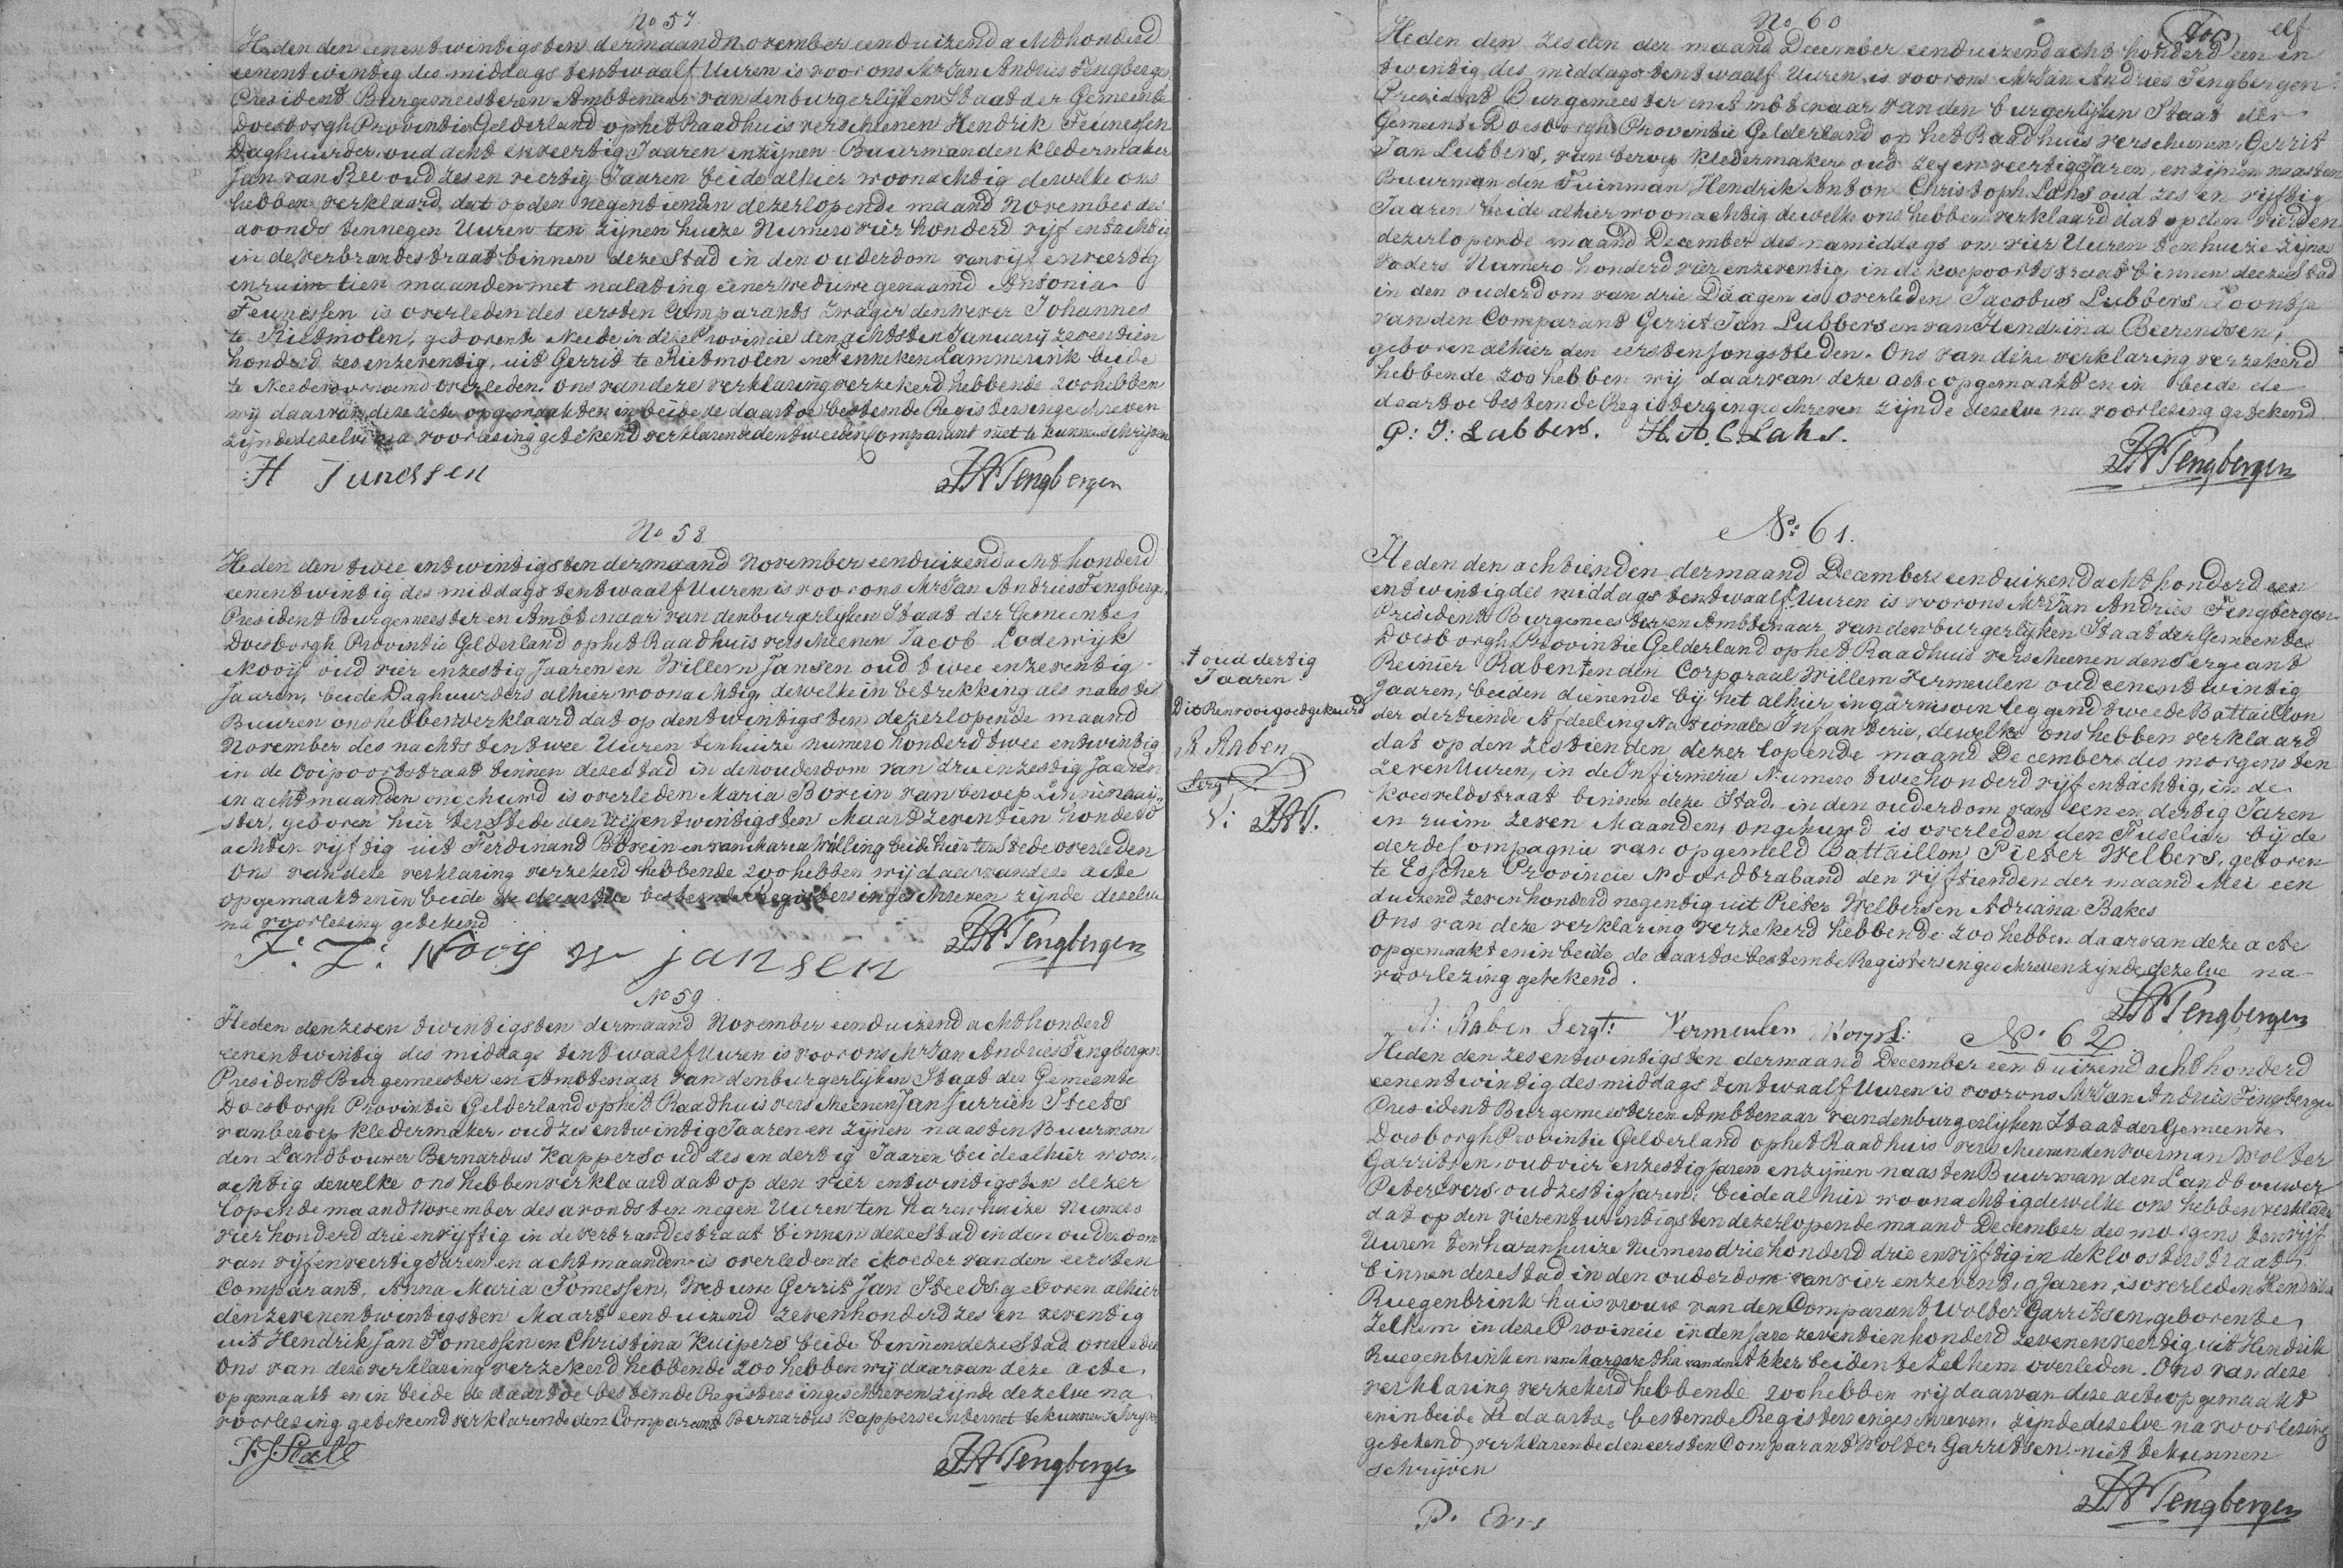 No 57
Heden den eenentwintigsten der maand November eenduizend achthonderd
eenentwintig des middags ten twaalf Uuren is voor ons Mr Jan Andries Tengbergen
President Burgemeester en Ambtenaar van den burgerlijken Staat der Gemeente
Doesborgh Provintie Gelderland op het Raadhuis verschenen Hendrik Teunessen
Daghuurder, oud acht en veertig Jaaren en zijnen Buurman den kledermaker
Jan van Ree oud zes en veertig Jaaren beide alhier woonachtig dewelke ons
hebben verklaard dat op den negentienden dezer lopende maand November des
avonds ten negen Uuren ten zijnen huize Numero vier honderd vijf en tachtig
in de verbrandestraat binnen deze Stad in den ouderdom van vijf en veertig
en ruim tien maanden met nalating eener Weduwe genaamd Antonia
Teunessen is overleden des eersten Comparants zwager den wever Johannes
te Rietmolen, geboren te Neede in deze Provincie den achtsten Januarij zeventien
honderd zes en zeventig, uit Gerrit te Rietmolen en Jenneken Lammerink beide
te Neede voornoemd overleden. Ons van deze verklaring verzekerd hebbende zoo hebben
wij daarvan deze acte opgemaakt en in beide de daartoe bestemde Registers ingeschreven
zijnde dezelve na voorlezing getekend verklarende den tweeden Comparant niet te kunnen schrijven
H Tunessen
JATengbergen
No 58
Heden den twee entwintigsten der maand November eenduizend acht honderd
eenentwintig des middags ten twaalf Uuren is voor ons Mr Jan Andries Tengbergen
President Burgemeester en Ambtenaar van den burgerlijken Staat der Gemeente
Doesborgh Provintie Gelderland op het Raadhuis verscheenen Jacob Lodewijk
Nooij oud vier en zestig Jaaren en Willem Jansen oud twee en zeventig
Jaaren, beide Daghuurders alhier woonachtig, dewelke in betrekking als naaste
Buuren ons hebben verklaard dat op den twintigsten dezer lopende maand
November des nachts ten twee Uuren ten huize numero honderd twee en twintig
in de Ooipoortstraat binnen deze stad in den ouderdom van drie en zestig Jaaren
en acht maanden ongehuwd is overleden Maria Borein van beroep Linnenaaij
ster, geboren hier ter Stede den vijfentwintigsten Maart zeventien honderd
acht en vijftig uit Ferdinand Borein en van Maria Willing beide hier ter Stede overleden
Ons van deze verklaring verzekerd hebbende zoo hebben wij daarvan deze acte
opgemaakt en in beide de daartoe bestemde Registers ingeschreven zijnde dezelve
na voorlezing getekend
J: L: Nooij W jansen
JATengbergen
No 59
Heden den zesentwintigsten der maand November eenduizend achthonderd
eenentwintig des middags ten twaalf Uuren is voor ons Mr Jan Andries Tengbergen
President Burgemeester en Ambtenaar van den burgerlijken Staat der Gemeente
Doesborgh Provintie Gelderland op het Raadhuis verscheenen Jan Jurrien Steets
van beroep kledermaker, oud zes entwintig Jaaren en zijnen naasten Buurman
den Landbouwer Bernardus Kappers oud zes en dertig Jaaren beide alhier woon,
achtig dewelke ons hebben verklaard dat op den vier entwintigsten dezer
lopende maand November des avonds ten negen Uuren ten haren huize Numero
vier honderd drie en vijftig in de verbrandestraat binnen deze Stad in den ouderdom
van vijf en veertig Jaren en acht maanden is overleden de Moeder van den eersten
Comparant, Anna Maria Tomessen, Weduwe Gerrit Jan Steets, geboren alhier
den zevenentwintigsten Maart eenduizend zevenhonderd zes en zeventig
uit Hendrik Jan Tomessen en Christina Kuipers beide binnen deze Stad overleden
Ons van deze verklaring verzekerd hebbende zoo hebben wij daarvan deze acte
opgemaakt en in beide de daartoe bestemde Registers ingeschreven zijnde dezelve na
voorlezing getekend verklarende den Comparant Bernardus Kappers echter niet te kunnen schrijven
JATengbergen
elf
No 60
Heden den zesden der maand December eenduizend acht honderd een en
twintig des middags ten twaalf Uuren is voor ons Mr Jan Andries Tengbergen
President Burgemeester en Ambtenaar van den burgerlijken Staat der
Gemeente Doesborgh Provintie Gelderland op het Raadhuis verscheenen Gerrit
Jan Lubbers, van beroep kledermaker oud zes en veertig Jaren, en zijnen naasten
Buurman den Tuinman Hendrik Anton Christoph Lahs oud zes en vijftig
Jaaren beide alhier woonachtig dewelke ons hebben verklaard dat op den vierden
dezer lopende maand December des namiddags om vier Uuren ten huize zijns
vaders Numero honderd vier en zeventig, in de koepoortstraat binnen deeze Stad
in den ouderdom van drie Daagen is overleden Jacobus Lubbers Zoontje
van den Comparant Gerrit Jan Lubbers en van Hendrina Beerendsen,
geboren alhier den eersten Jongstleden. Ons van deze verklaring verzekerd
hebbende zoo hebben wij daarvan deze acte opgemaakt en in beide de
daartoe bestemde Registers ingeschreven zijnde dezelve na voorlezing getekend
G: J: Lubbers. H. A. C. Lahs.
JATengbergen
No: 61.
Heden den achtienden der maand December eenduizend achthonderd een
entwintig des middags ten twaalf Uuren is voor ons Mr Jan Andries Tengbergen
President Burgemeester en Ambtenaar van den burgerlijken Staat der Gemeente
Doesborgh Provintie Gelderland op het Raadhuis verscheenen den Sergeant
Reinier Raben † en den Corporaal Willem Vermeulen oud eenentwintig
Jaaren, beiden dienende bij het alhier in garnisoen leggend tweede Battaillon
der dertiende Afdeeling Nationale Infanterie, dewelke ons hebben verklaard
dat op den zestienden dezer lopende maand December des morgens ten
zeven Uuren, in de Infirmerie Numero twee honderd vijf en tachtig, in de
Koesveldstraat binnen deze Stad in den ouderdom van een en dertig Jaren
en ruim zeven Maanden, ongehuwd is overleden den Fuselier bij de
derde Compagnie van opgemeld Battaillon Pieter Welbers, geboren
te Esscher Provincie Noordbraband den vijftienden der maand Mei een
duizend zevenhonderd negentig uit Pieter Welbers en Adriana Bakes
Ons van deze verklaring verzekerd hebbende zoo hebben daarvan deze acte
opgemaakt en in beide de daartoe bestemde Registers ingeschreven zijnde dezelve na
voorlezing getekend.
† oud dertig
Jaaren
Dit Renvooi goedgekeurd
R Raben
Sergt
V: JAT.
R: Raben Sergt: Vermeulen Korpl:
JATengbergen
No: 62
Heden den zes entwintigsten der maand December eenduizend acht honderd
eenentwintig des middags ten twaalf Uuren is voor ons Mr Jan Andries Tengbergen
President Burgemeester en Ambtenaar van den burgerlijken Staat der Gemeente
Doesborgh Provintie Gelderland op het Raadhuis verscheenen den voerman Wolter
Garritsen, oud vier en zestig Jaren en zijnen naasten Buurman den Landbouwer
Peter Evers oud zestig Jaren: beide alhier woonachtig dewelke ons hebben verklaard
dat op den vierentwintigsten dezer lopende maand December des morgens ten vijf
Uuren ten haren huize Numero driehonderd drie en vijftig in de kloosterstraat
binnen deze Stad in den ouderdom van vier en zeventig Jaren, is overleden Hendrika
Ruegenbrink huisvrouw van den Comparant Wolter Garritsen, geboren te
Zelhem in deze Provincie in den Jare zeventienhonderd zevenenveertig uit Hendrik
Ruegenbrink en van Margaretha van den Akker beiden te Zelhem overleden. Ons van deze
verklaring verzekerd hebbende zoo hebben wij daarvan deze acte opgemaakt
en in beide de daartoe bestemde Registers ingeschreven, zijnde dezelve na voorlezing
getekend, verklarende den eersten Comparant Wolter Garritsen niet te kunnen
schrijven
P. Evers
JATengbergen